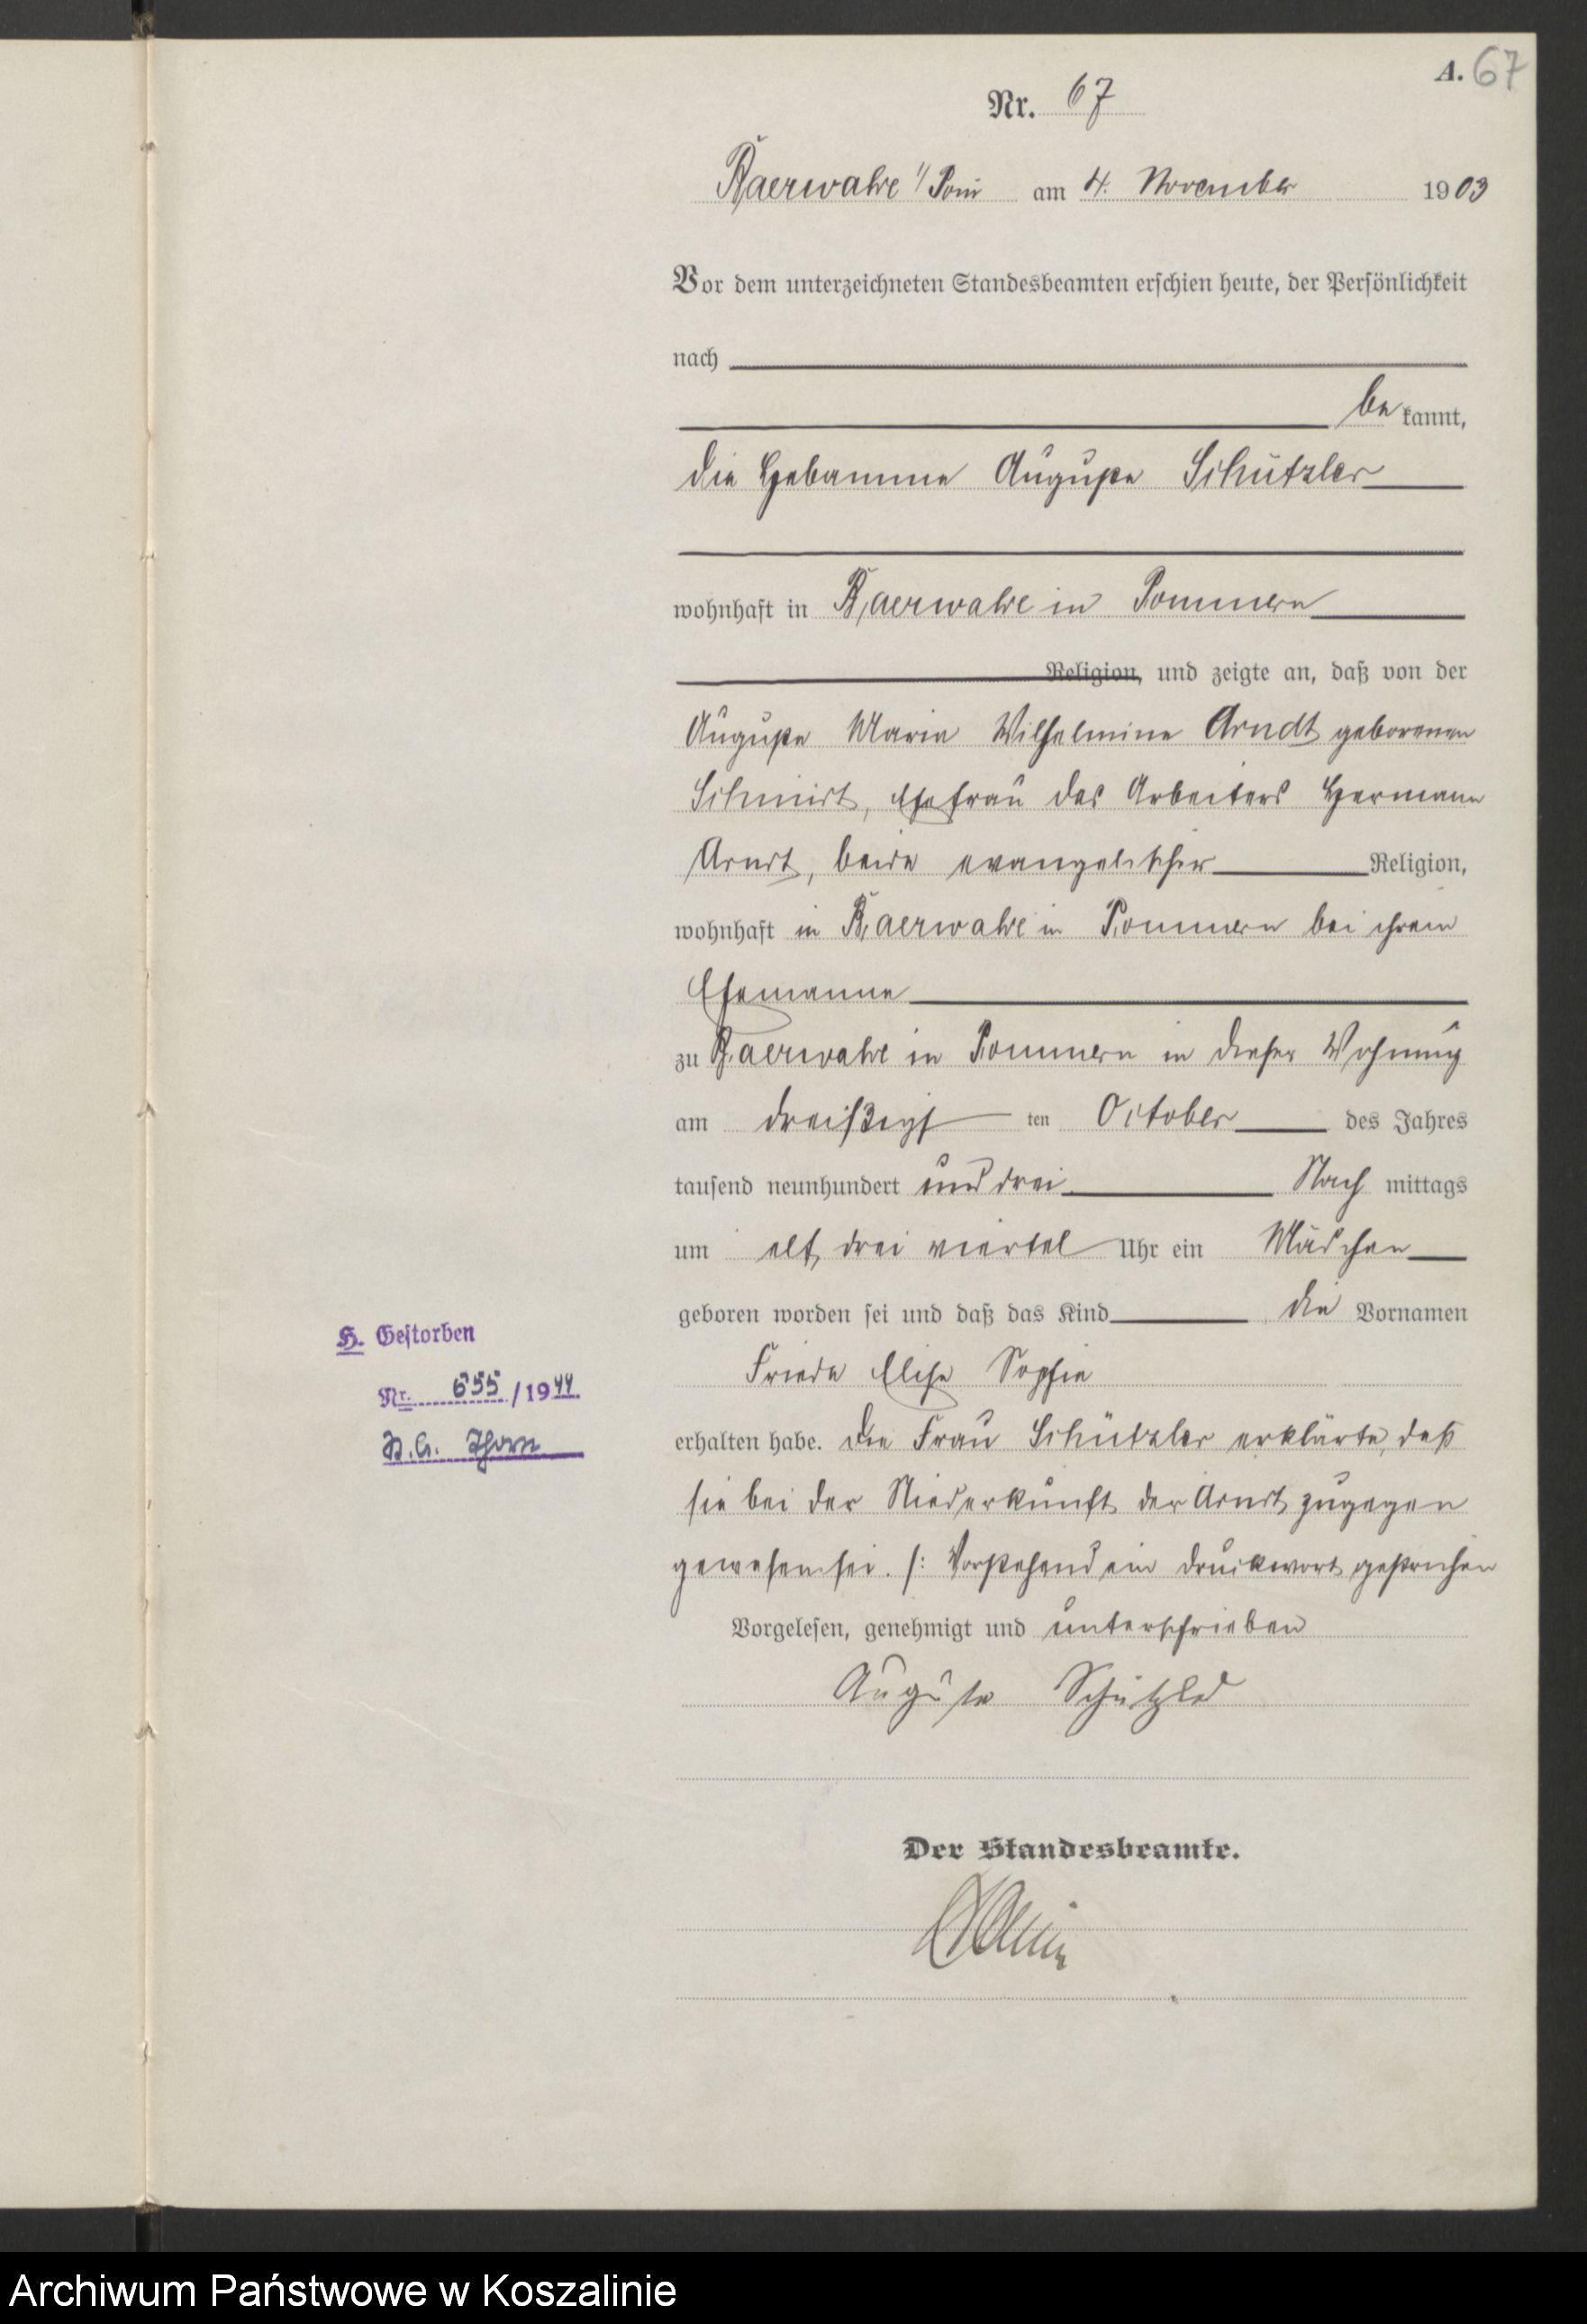 A. 67
Nr. 67
Baerwalde i/Pom am 4. November 1903
Vor dem unterzeichneten Standesbeamten erschien heute, der Persönlichkeit
nach
be kannt,
die Hebamme Auguste Schützler
wohnhaft in Baerwalde in Pommern
Religion, und zeigte an, daß von der
Auguste Maria Wilhelmine Arndt geborenen
Schmidt, Ehefrau des Arbeiters Hermann
Arndt, beide evangelischer Religion,
wohnhaft in Baerwalde in Pommern bei ihrem
Ehemanne
zu Baerwalde in Pommern in dieser Wohnung
am dreißigsten October des Jahres
tausend neunhundert und drei Nach mittags
um elf drei viertel Uhr ein Mädchen
geboren worden sei und daß das Kind die Vornamen
Frieda Elise Sophie
erhalten habe. Die Frau Schützler erklärte, daß
sie bei der Niederkunft der Arndt zugegen
gewesen sei. /: Vorstehend ein Druckwort gestrichen
Vorgelesen, genehmigt und unterschrieben
Auguste Schützler
Der Standesbeamte.
H. Gestorben
Nr. 655/1944
St.A. Thorn
Archiwum Państwowe w Koszalinie